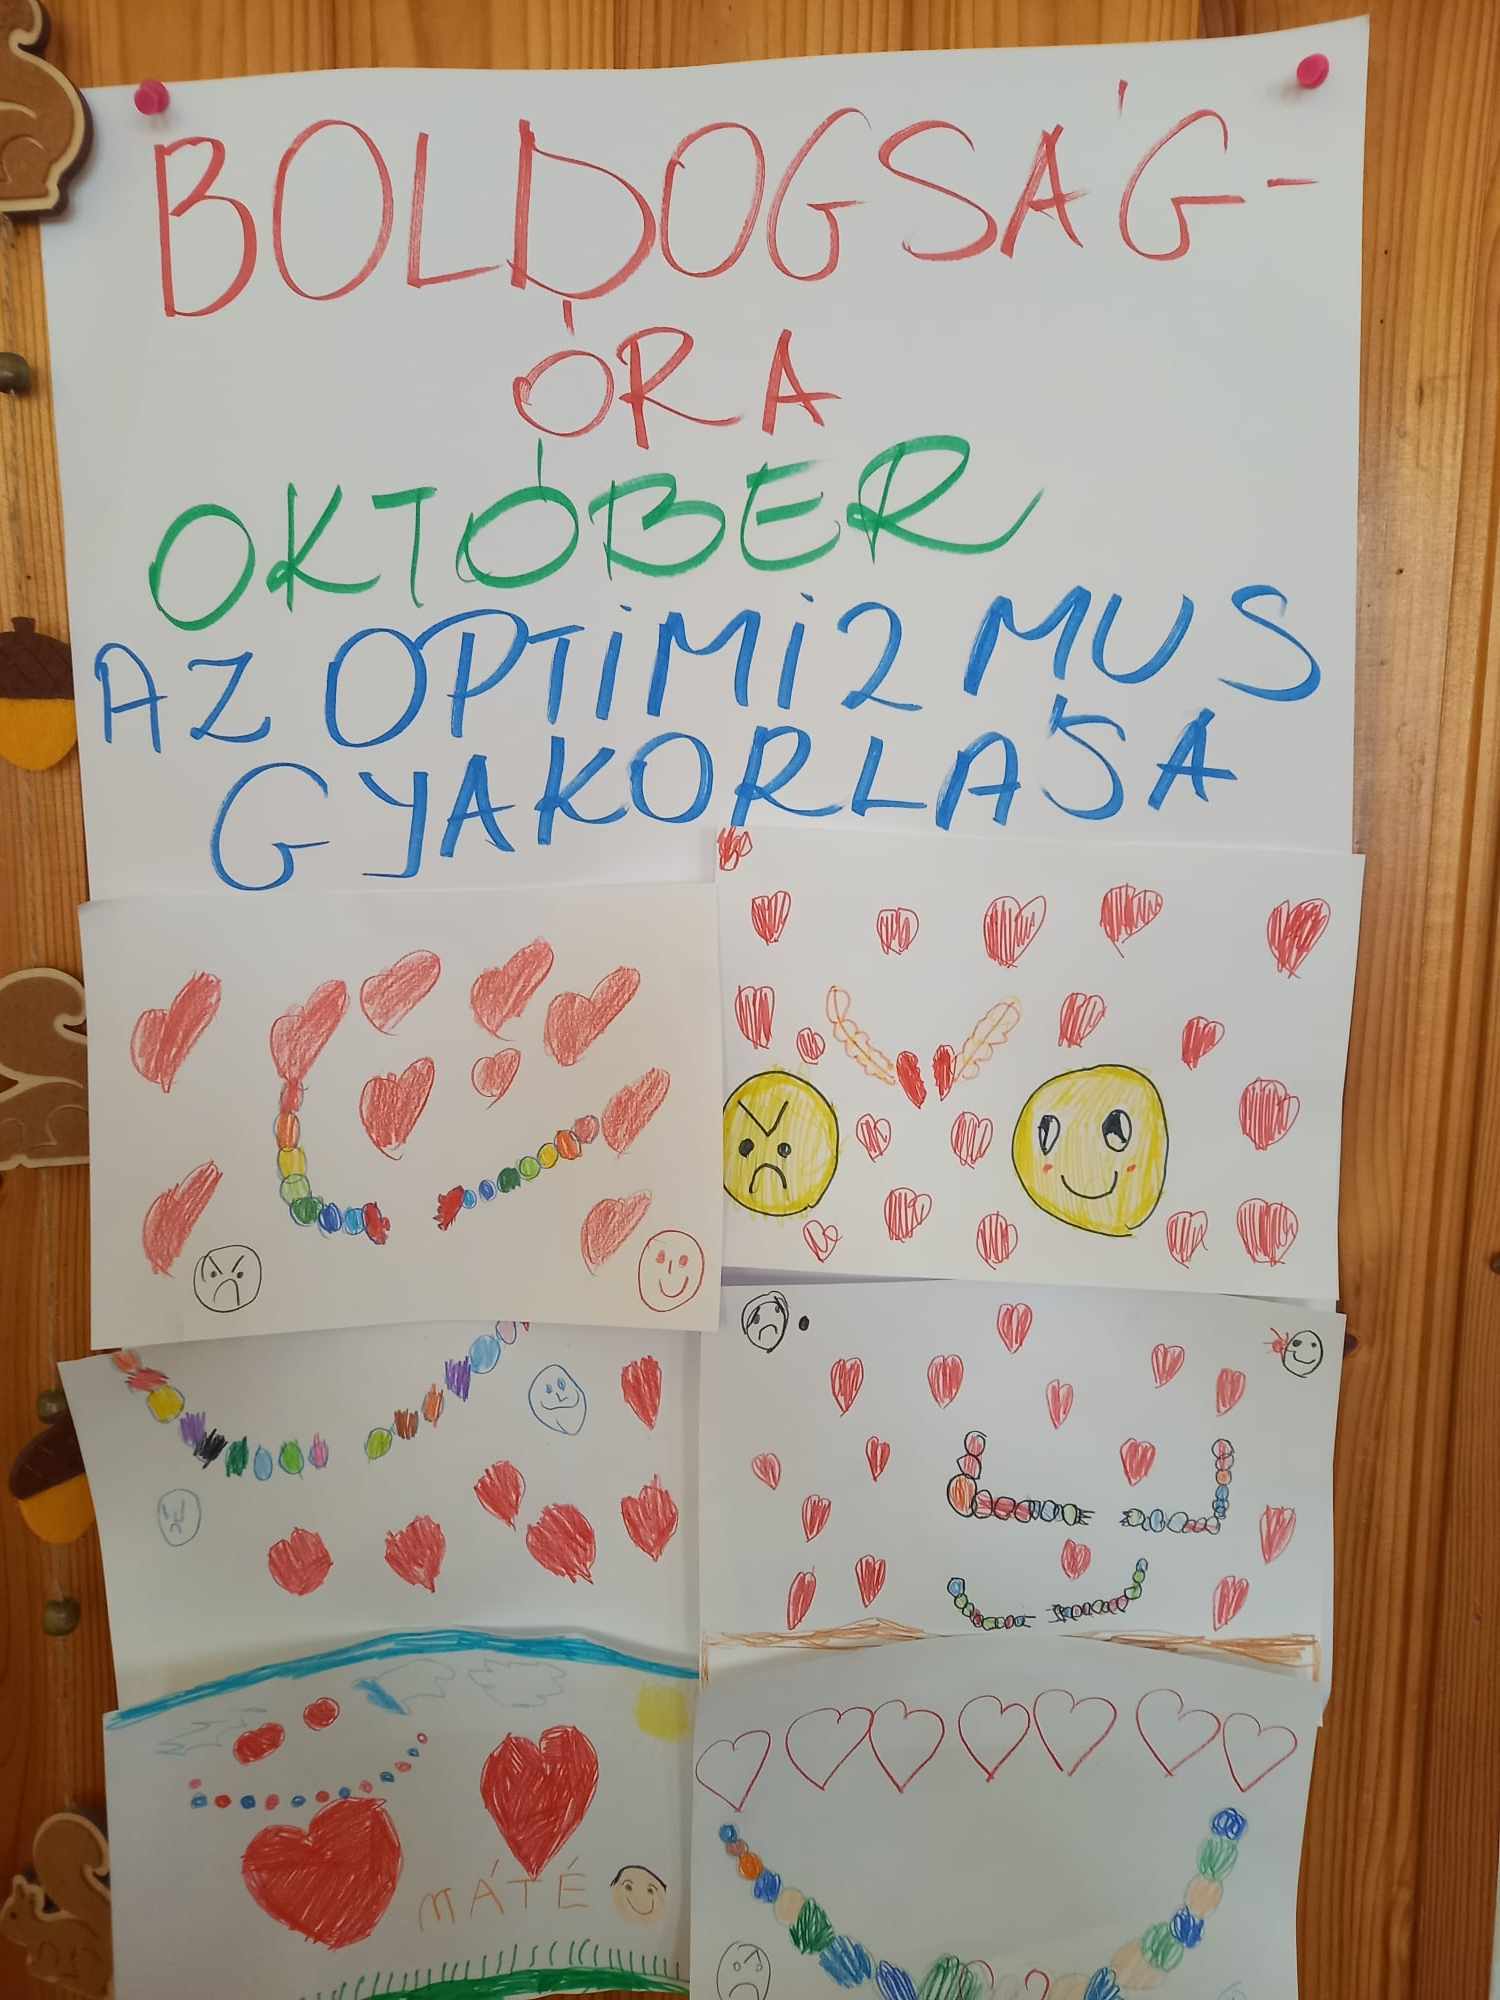 BOLDOGSÁG-
ÓRA
OKTÓBER
AZ OPTIMIZMUS
GYAKORLÁSA
MÁTÉ